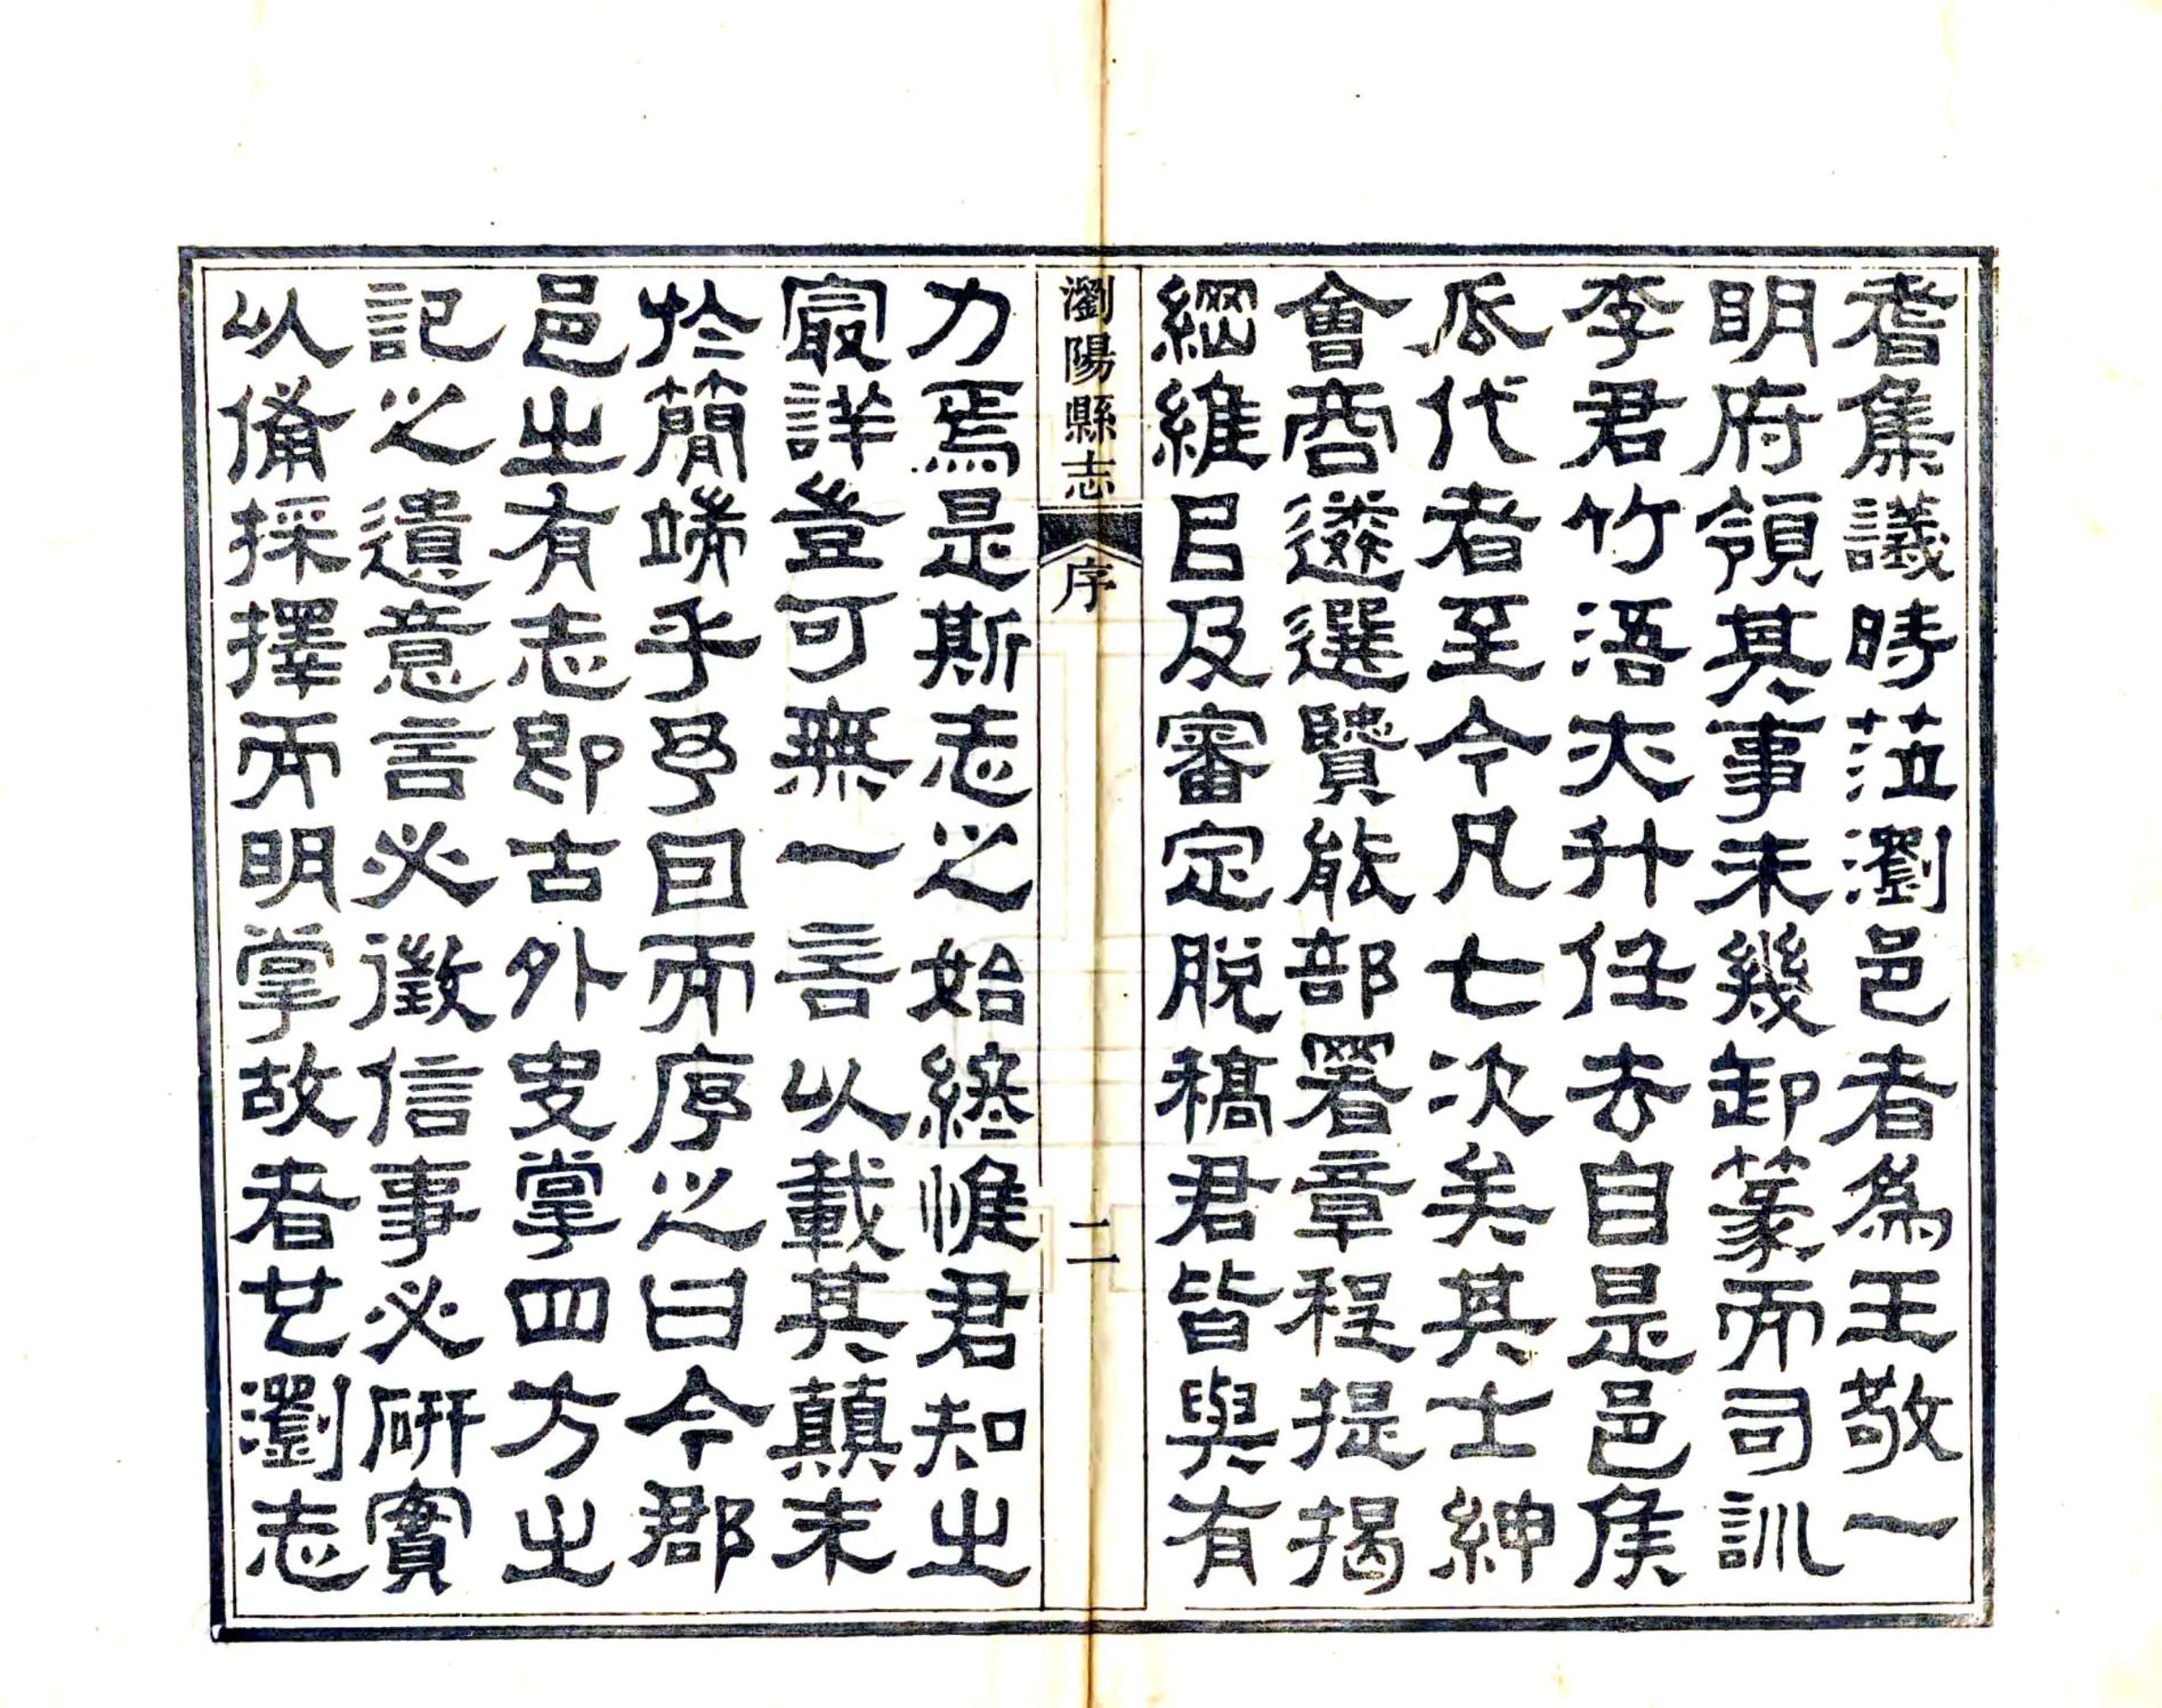 耆集議時蒞瀏邑者為王敬一
明府領其事未幾卸篆而司訓
李君竹浯亦升任去自是邑侯
瓜代者至今凡七次矣其士紳
會商遴選賢能部署章程提揭
綱維㠯及審定脫稿君皆與有
瀏陽縣志 序 二
力焉是斯志之始終惟君知之
㝡詳豈可無一言以載其顛末
於簡端乎予囙而序之曰今郡
邑之有志即古外史掌四方之
記之遺意言必徵信事必研實
以備採擇而明掌故者也瀏志